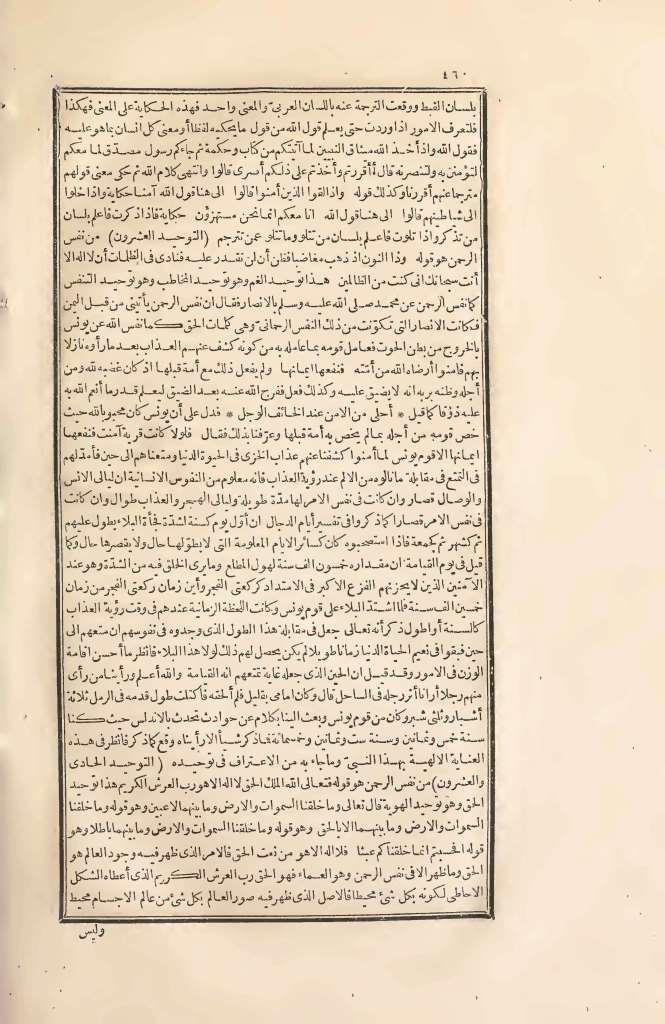 ٤٦٠
بلسان القبط ووقعت الترجمة عنه باللسان العربي والمعنى واحد فهذه الحكاية على المعنى فهكذا
فلتعرف الامور اذا وردت حتى يعلم قول الله من قول ما يحكيه لفظا أو معنى كل انسان بما هو عليه
فقول الله واذ أخذ الله ميثاق النبيين لما آتيتكم من كتاب وحكمة ثم جاءكم رسول مصدق لما معكم
لتؤمنن به ولتنصرنه قال أأقررتم وأخذتم على ذلكم أصرى قالوا وانتهى كلام الله ثم حكى معنى قولهم
مترجما عنهم أقررنا وكذلك قوله واذا لقوا الذين آمنوا قالوا الى هنا قول الله آمنا حكاية واذا خلوا
الى شياطينهم قالوا الى هنا قول الله انا معكم انما نحن مستهزؤن حكاية فاذا ذكرت فاعلم بلسان
من تذكر واذا تلوت فاعلم بلسان من تتلو وما تتلو وعمن تترجم (التوحيد العشرون) من نفس
الرحمن هو قوله وذا النون اذ ذهب مغاضبا فظن أن لن نقدر عليه فنادى فى الظلمات أن لا اله الا
أنت سبحانك انى كنت من الظالمين هذا توحيد الغم وهو توحيد المخاطب وهو توحيد التنفس
كما نفس الرحمن عن محمد صلى الله عليه وسلم بالانصار فقال ان نفس الرحمن يأتينى من قبل اليمن
فكانت الانصار التى تكونت من ذلك النفس الرحمانى وهى كلمات الحق كما نفس الله عن يونس
بالخروج من بطن الحوت فعامل قومه بما عامله به من كونه كشف عنهم العذاب بعد ما رأوه نازلا
بهم فآمنوا أرضاه الله من أمته فنفعها ايمانها ولم يفعل ذلك مع أمة قبلها اذ كان غضبه لله ومن
أجله وظنه بربه انه لا يضيق عليه وكذلك فعل ففرج الله عنه بعد الضيق ليعلم قدر ما أنعم الله به
عليه ذوقا كما قيل * أحلى من الامن عند الخائف الوجل * فدل على أن يونس كان محبوبا لله حيث
خص قومه من أجله بما لم يخص به أمة قبلها وعرفنا بذلك فقال فلولا كانت قرية آمنت فنفعها
ايمانها الا قوم يونس لما آمنوا كشفنا عنهم عذاب الخزى فى الحيوة الدنيا ومتعناهم الى حين فأمد لهم
فى التمتع فى مقابلة ما نالوه من الالم عند رؤية العذاب فانه معلوم من النفوس الانسانية ان ليالى الانس
والوصال قصار وان كانت فى نفس الامر لها مدة طويلة وليالى الهجر والعذاب طوال وان كانت
فى نفس الامر قصارا كما ذكروا فى تفسير أيام الدجال ان أول يوم كسنة لشدة فجأة البلاء يطول عليهم
ثم كشهر ثم كجمعة فاذا استصحبوه كان كسائر الايام المعلومة التى لا يطولها حال ولا يقصرها حال وكما
قيل فى يوم القيامة ان مقداره خمسون ألف سنة لهول المطلع وما يرى الخلق فيه من الشدة وهو عند
الآمنين الذين لا يحزنهم الفزع الاكبر فى الامتداد كركعتى الفجر وأين زمان ركعتى الفجر من زمان
خمسين ألف سنة فلما اشتد البلاء على قوم يونس وكانت اللحظة الزمانية عندهم فى وقت رؤية العذاب
كالسنة أو أطول ذكر أنه تعالى جعل فى مقابلة هذا الطول الذى وجدوه فى نفوسهم ان متعهم الى
حين فبقوا فى نعيم الحياة الدنيا زمانا طويلا لم يكن يحصل لهم ذلك لولا هذا البلاء فانظر ما أحسن اقامة
الوزن فى الامور وقد قيل ان الحين الذى جعله غاية تمتعهم انه القيامة والله أعلم ورأينا من رأى
منهم رجلا أرانا أثر رجله فى الساحل قال وكان امامى بقليل فلم ألحقه فاكتلت طول قدمه فى الرمل ثلاثة
أشبار وثلثى شبر وكان من قوم يونس وبعث الينا بكلام عن حوادث تحدث بالاندلس حيث كنا
سنة خمس وثمانين وسنة ست وثمانين وخمسمائة فما ذكر شيأ الا رأيناه وقع كما ذكر فانظر فى هذه
العناية الالهية بهذا النبى وما جاء به من الاعتراف فى توحيده (التوحيد الحادى
والعشرون) من نفس الرحمن هو قوله فتعالى الله الملك الحق لا اله الا هو رب العرش الكريم هذا توحيد
الحق وهو توحيد الهوية قال تعالى وما خلقنا السموات والارض وما بينهما لاعبين وهو قوله وما خلقنا
السموات والارض وما بينهما الا بالحق وهو قوله وما خلقنا السموات والارض وما بينهما باطلا وهو
قوله افحسبتم انما خلقناكم عبثا فلا اله الا هو من نعت الحق فالامر الذى ظهر فيه وجود العالم هو
الحق وما ظهر الا فى نفس الرحمن وهو العماء فهو الحق رب العرش الكريم الذى أعطاه الشكل
الاحاطى لكونه بكل شئ محيطا فالاصل الذى ظهر فيه صور العالم بكل شئ من عالم الاجسام محيط
وليس